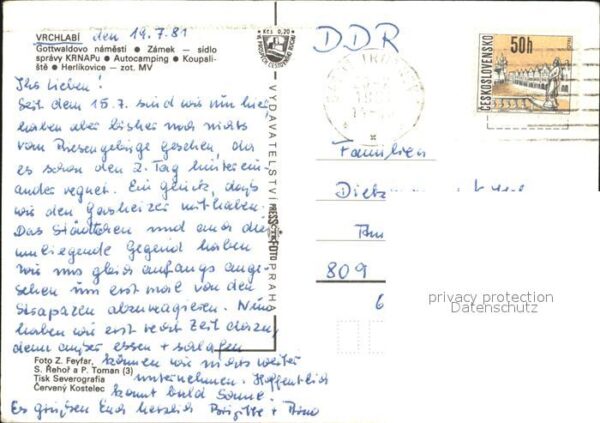 VRCHLABÍ den 19.7.81
Gottwaldovo náměstí ● Zámek — sídlo
správy KRNAPu ● Autocamping ● Koupali-
ště ● Herlíkovice — zot. MV
Ihr Lieben!
Seit dem 15.7. sind wir nun hier,
haben aber bisher noch nichts
vom Riesengebirge gesehen, da
es schon den 2. Tag hinterein-
ander regnet. Ein Glück, daß
wir den Gasheizer mithaben.
Das Städtchen und auch die
umliegende Gegend haben
wir uns gleich anfangs ange-
sehen um erst mal von den
Strapazen abzureagieren. Nun
haben wir erst recht Zeit dazu,
denn außer essen + schlafen
können wir nichts weiter
unternehmen. Hoffentlich
kommt bald Sonne!
Es grüßen Euch herzlich Brigitte +
Foto Z. Feyfar,
S. Řehoř a P. Toman (3)
Tisk Severografia
Červený Kostelec
Kčs 0,20
VYDAVATELSTVÍ PRESSFOTO PRAHA
DDR
ČESKOSLOVENSKO
50h
Familien
809
6
privacy protection
Datenschutz